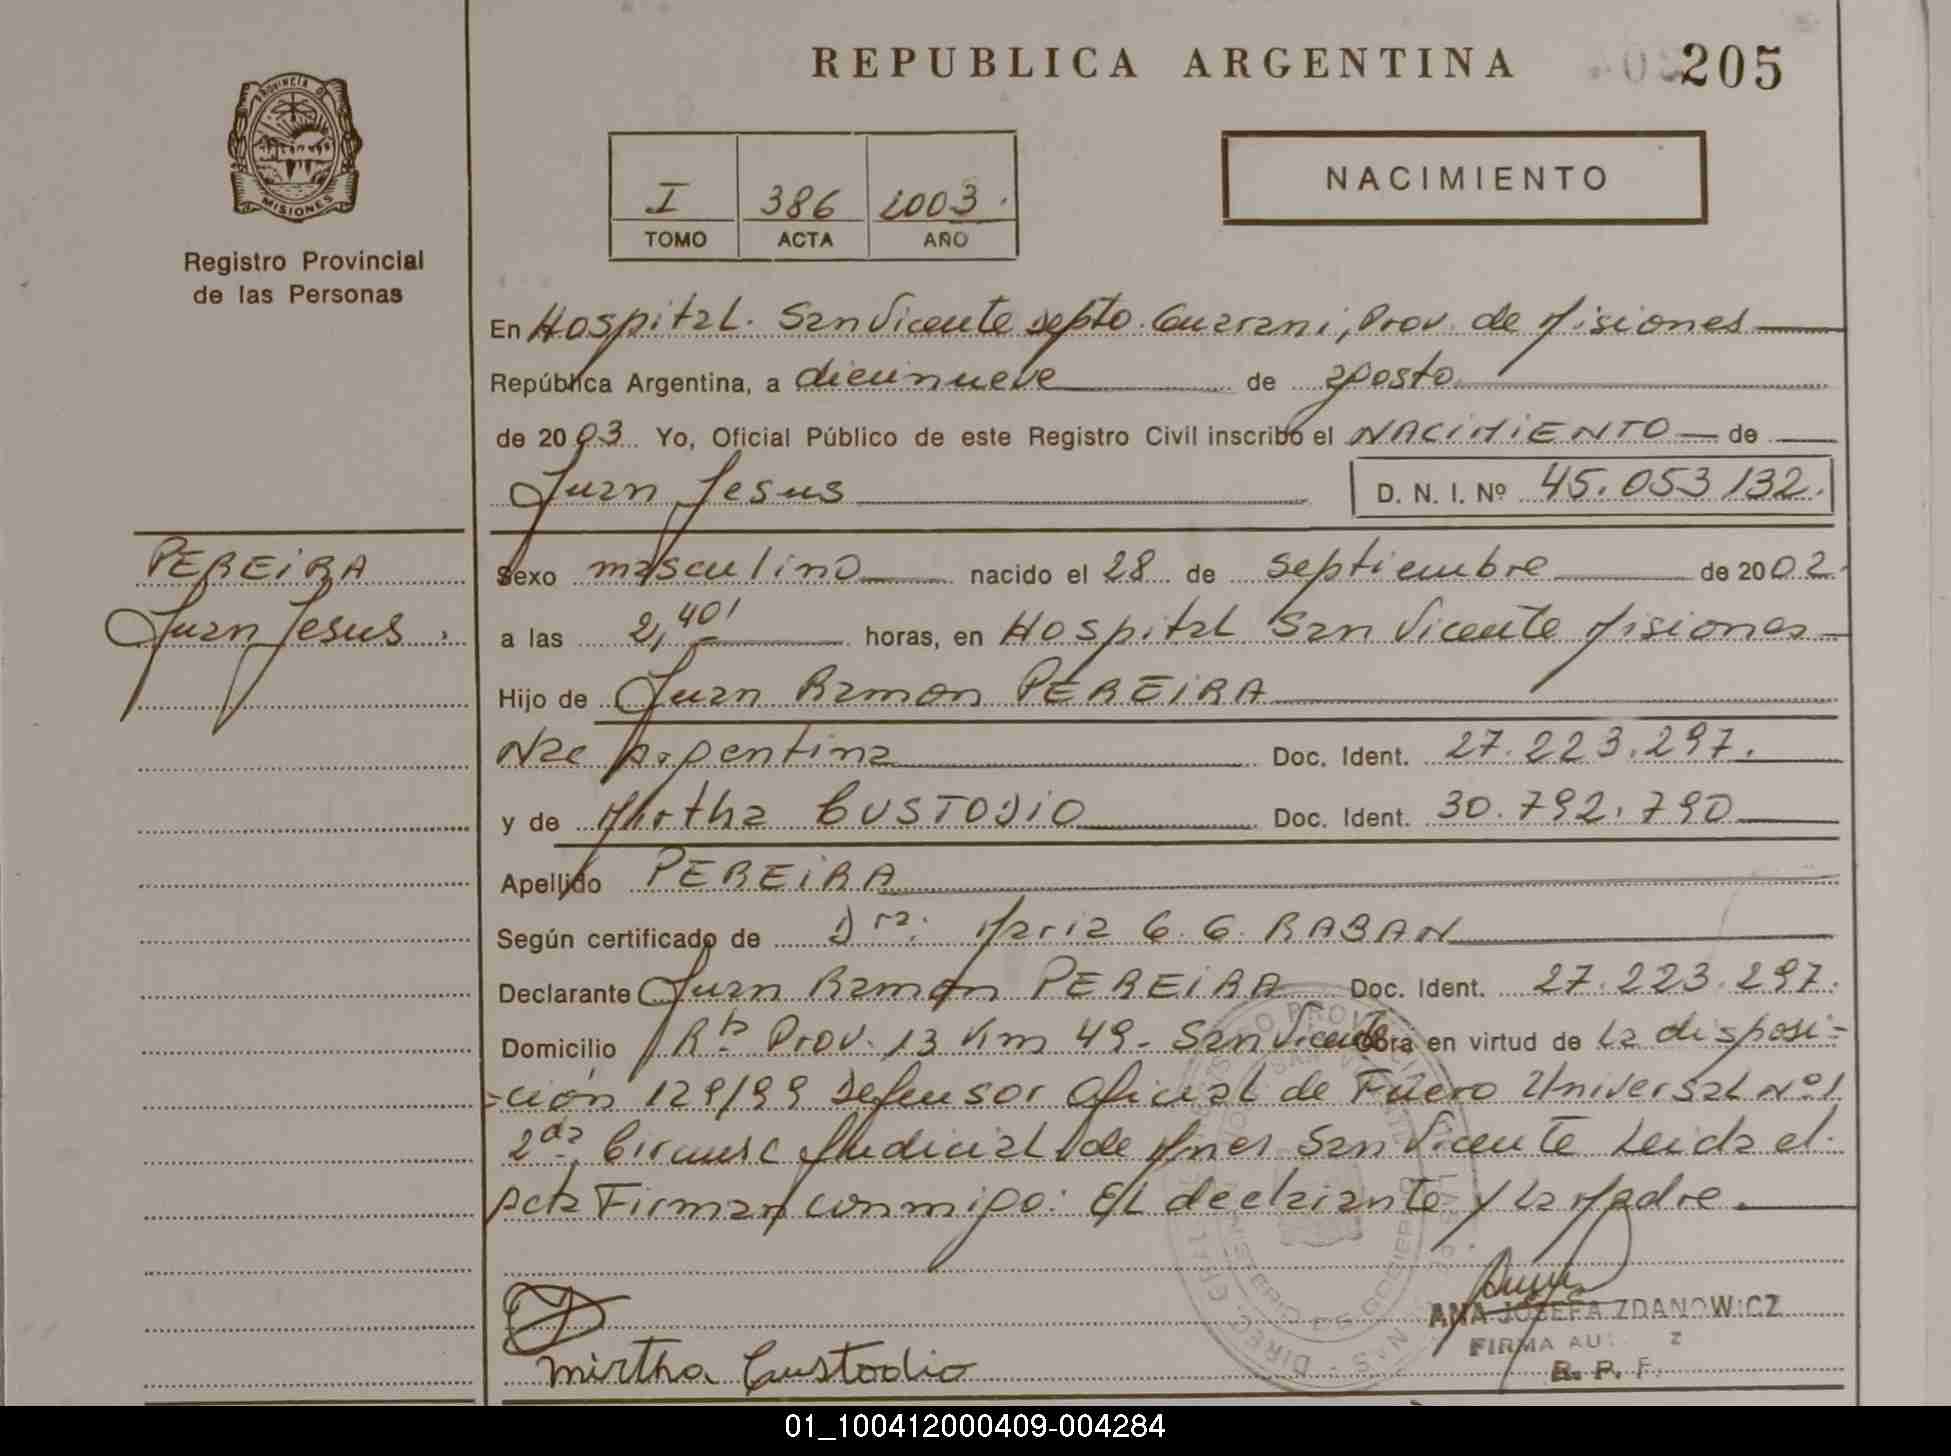 REPUBLICA ARGENTINA
205
PROVINCIA DE
MISIONES
Registro Provincial
de las Personas
I 386 2003.
TOMO ACTA AÑO
NACIMIENTO
En Hospital. San Vicente Depto. Guarani, Prov. de Misiones
República Argentina, a diecinueve de agosto
de 2003. Yo, Oficial Público de este Registro Civil inscribo el NACIMIENTO de
Juan Jesus D. N. I. Nº 45.053 132.
PEREIRA
Juan Jesus.
Sexo masculino nacido el 28 de septiembre de 2002.
a las 2,40' horas, en Hospital San Vicente Misiones
Hijo de Juan Ramon PEREIRA
Nac Argentina Doc. Ident. 27.223.297.
y de Mirtha CUSTODIO Doc. Ident. 30.792.790
Apellido PEREIRA
Según certificado de Dra. Maria G. G. RABAN
Declarante Juan Ramon PEREIRA Doc. Ident. 27.223.297.
Domicilio Rta Prov. 13 Km 49- San Vicente Obra en virtud de la disposi=
=ción 129/99 Defensor Oficial de Fuero Universal Nº 1
2da Circunsc Judicial de Mnes San Vicente Leida el
Acta Firman conmigo: El declarante y la Madre.
Mirtha Custodio
ANA JOSEFA ZDANOWICZ
FIRMA AU
R. P. F.
01_100412000409-004284